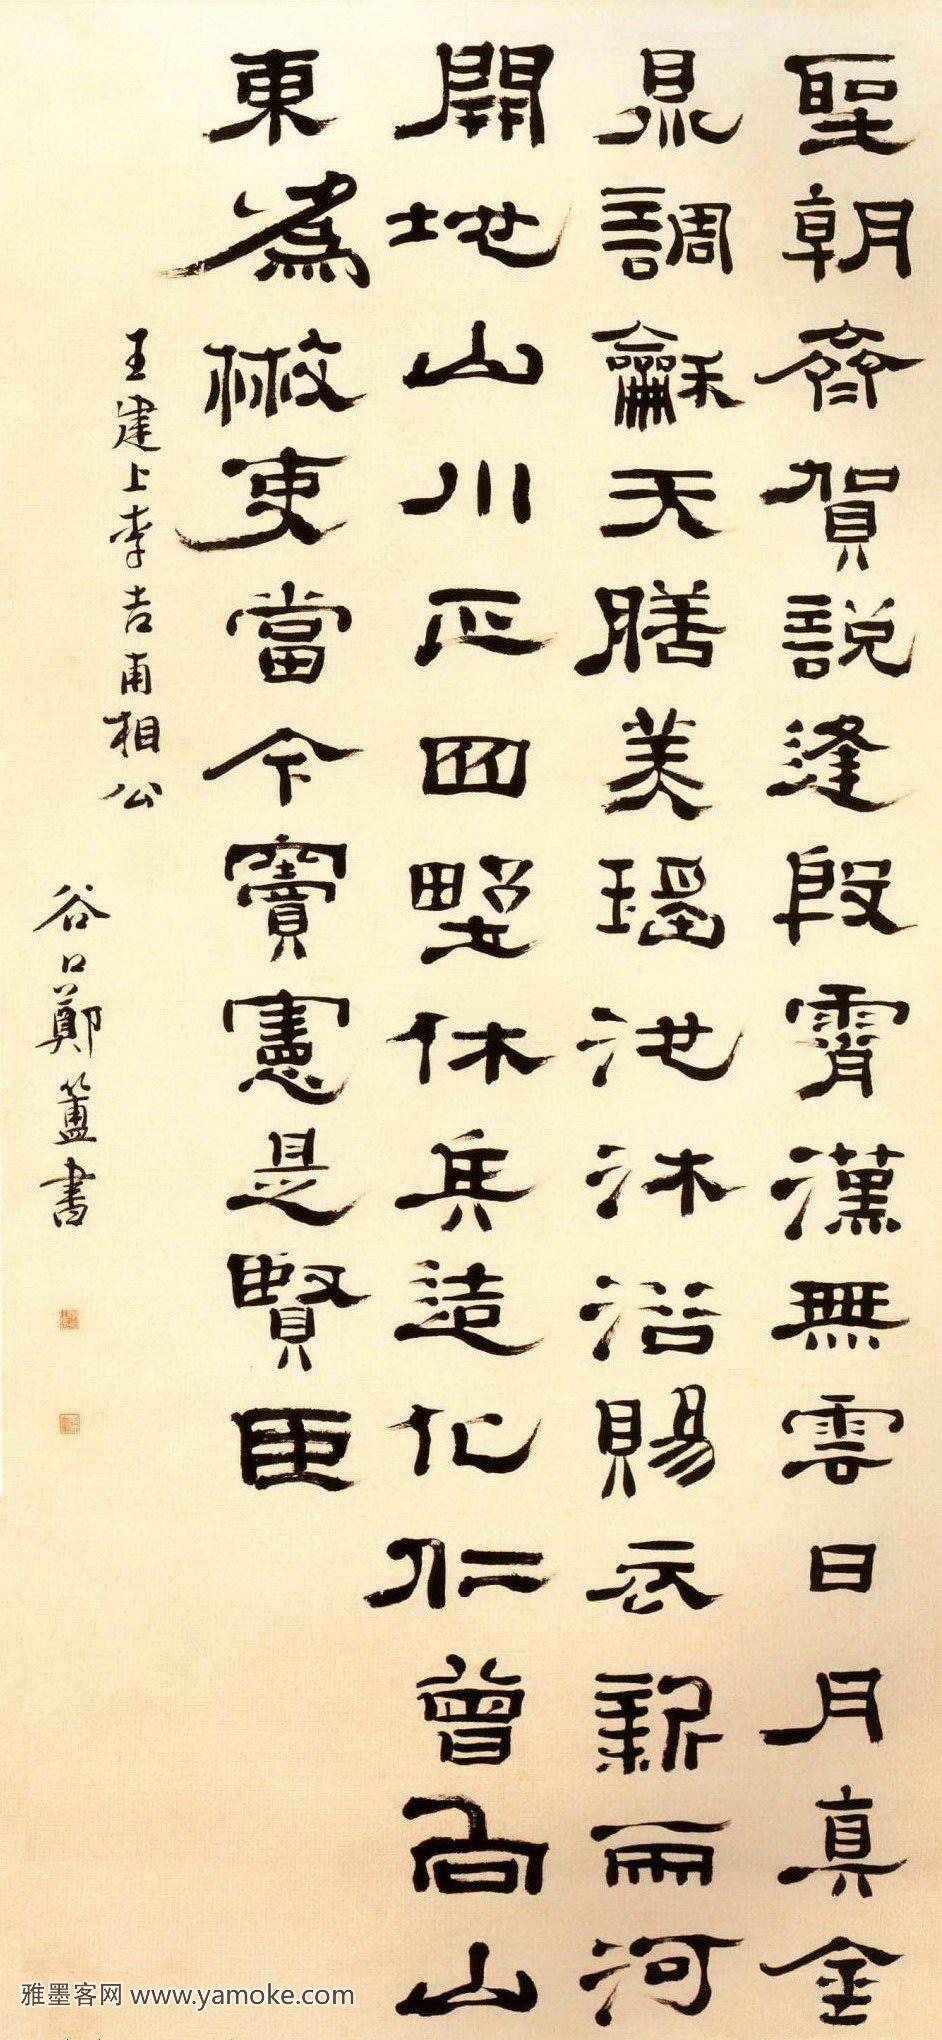 聖朝齊賀說逢殷霄漢無雲日月真金
鼎調龢天膳美瑤池沐浴賜衣新兩河
開地山川正四野休兵造化仁曾向山
東為㪔吏當今竇憲是賢臣
王建上李吉甫相公
谷口鄭簠書
雅墨客网 www.yamoke.com